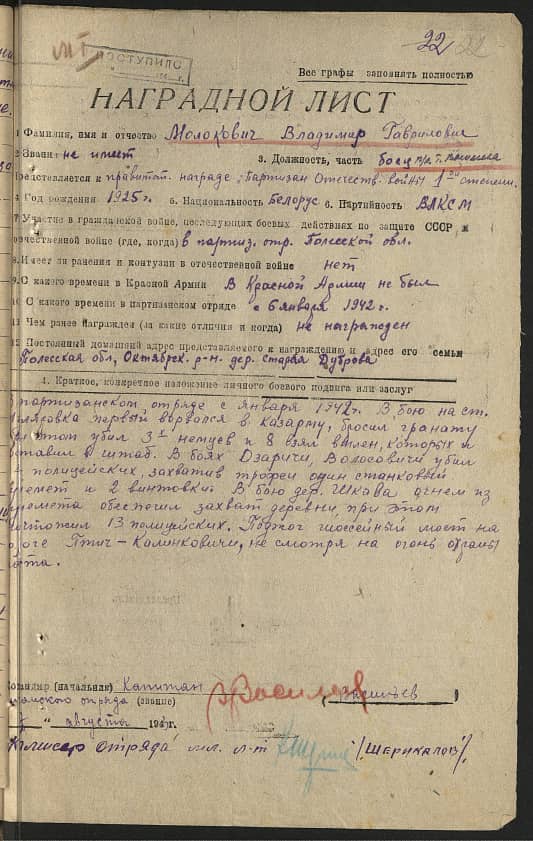 22 22
МГ
ПОСТУПИЛО
Все графы заполнять полностью
НАГРАДНОЙ ЛИСТ
1 Фамилия, имя и отчество Молокович Владимир Гаврилович
2 Звание не имеет 3. Должность, часть боец п/о т.
Представляется к правит. награде: "Партизан Отечеств. войны" 1ой степени.
4 Год рождения 1925г. 5. Национальность Белорус 6. Партийность ВЛКСМ
7 Участие в гражданской войне, последующих боевых действиях по защите СССР и
отечественной войне (где, когда) в партиз. отр. Полесской обл.
8. Имеет ли ранения и контузии в отечественной войне нет
9. С какого времени в Красной Армии В Красной Армии не был
10 С какого времени в партизанском отряде с 6 января 1942г.
11 Чем ранее награжден (за какие отличия и когда) не награжден
12 Постоянный домашний адрес представляемого к награждению и адрес его семьи
Полесская обл, Октябрьск. р-н. дер. Старая Дуброва
1. Краткое, конкретное изложение личного боевого подвига или заслуг
партизанском отряде с января 1942г. В бою на ст.
первый ворвался в казарму, бросил гранату
при этом убил 3х немцев и 8 взял в плен, которых и
доставил в штаб. В боях Озаричи, Волосовичи убил
полицейских, захватив трофеи один станковый
пулемет и 2 винтовки. В бою дер. Шкава огнем из
пулемета обеспечил захват деревни, при этом
уничтожил 13 полицейских. Поджог шоссейный мост на
дороге Птич-Калинковичи, не смотря на огонь охраны
моста.
Командир (начальник) Капитан Васильев (Васильев)
отряда (звание)
" августа 194 г.
Комиссар отряда мл. л-т /Шерикалов/